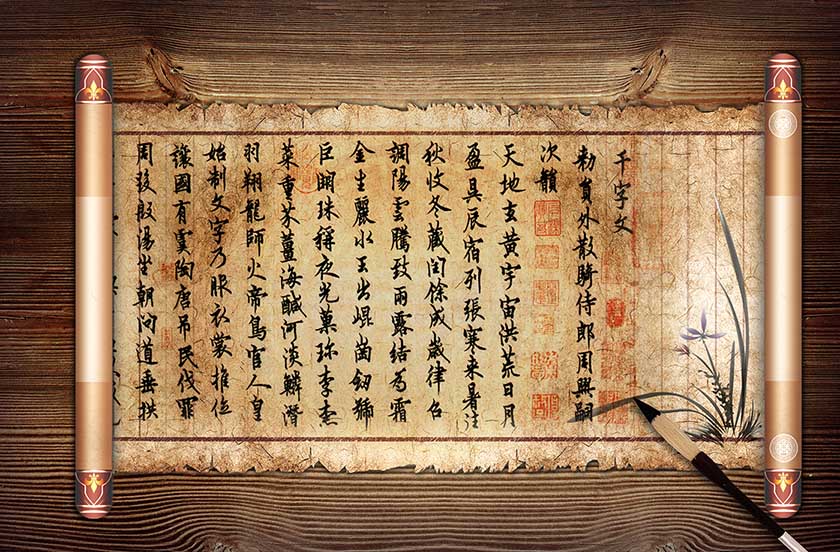 千字文
勑員外散騎侍郎周興嗣
次韻
天地玄黃宇宙洪荒日月
盈昃辰宿列張寒来暑往
秋收冬藏閏餘成歲律召
調陽雲騰致雨露結為霜
金生麗水玉出崐崗劒號
巨闕珠稱夜光菓珍李柰
菜重芥薑海鹹河淡鱗潛
羽翔龍師火帝鳥官人皇
始制文字乃服衣裳推位
讓國有虞陶唐吊民伐罪
周發殷湯坐朝問道垂拱